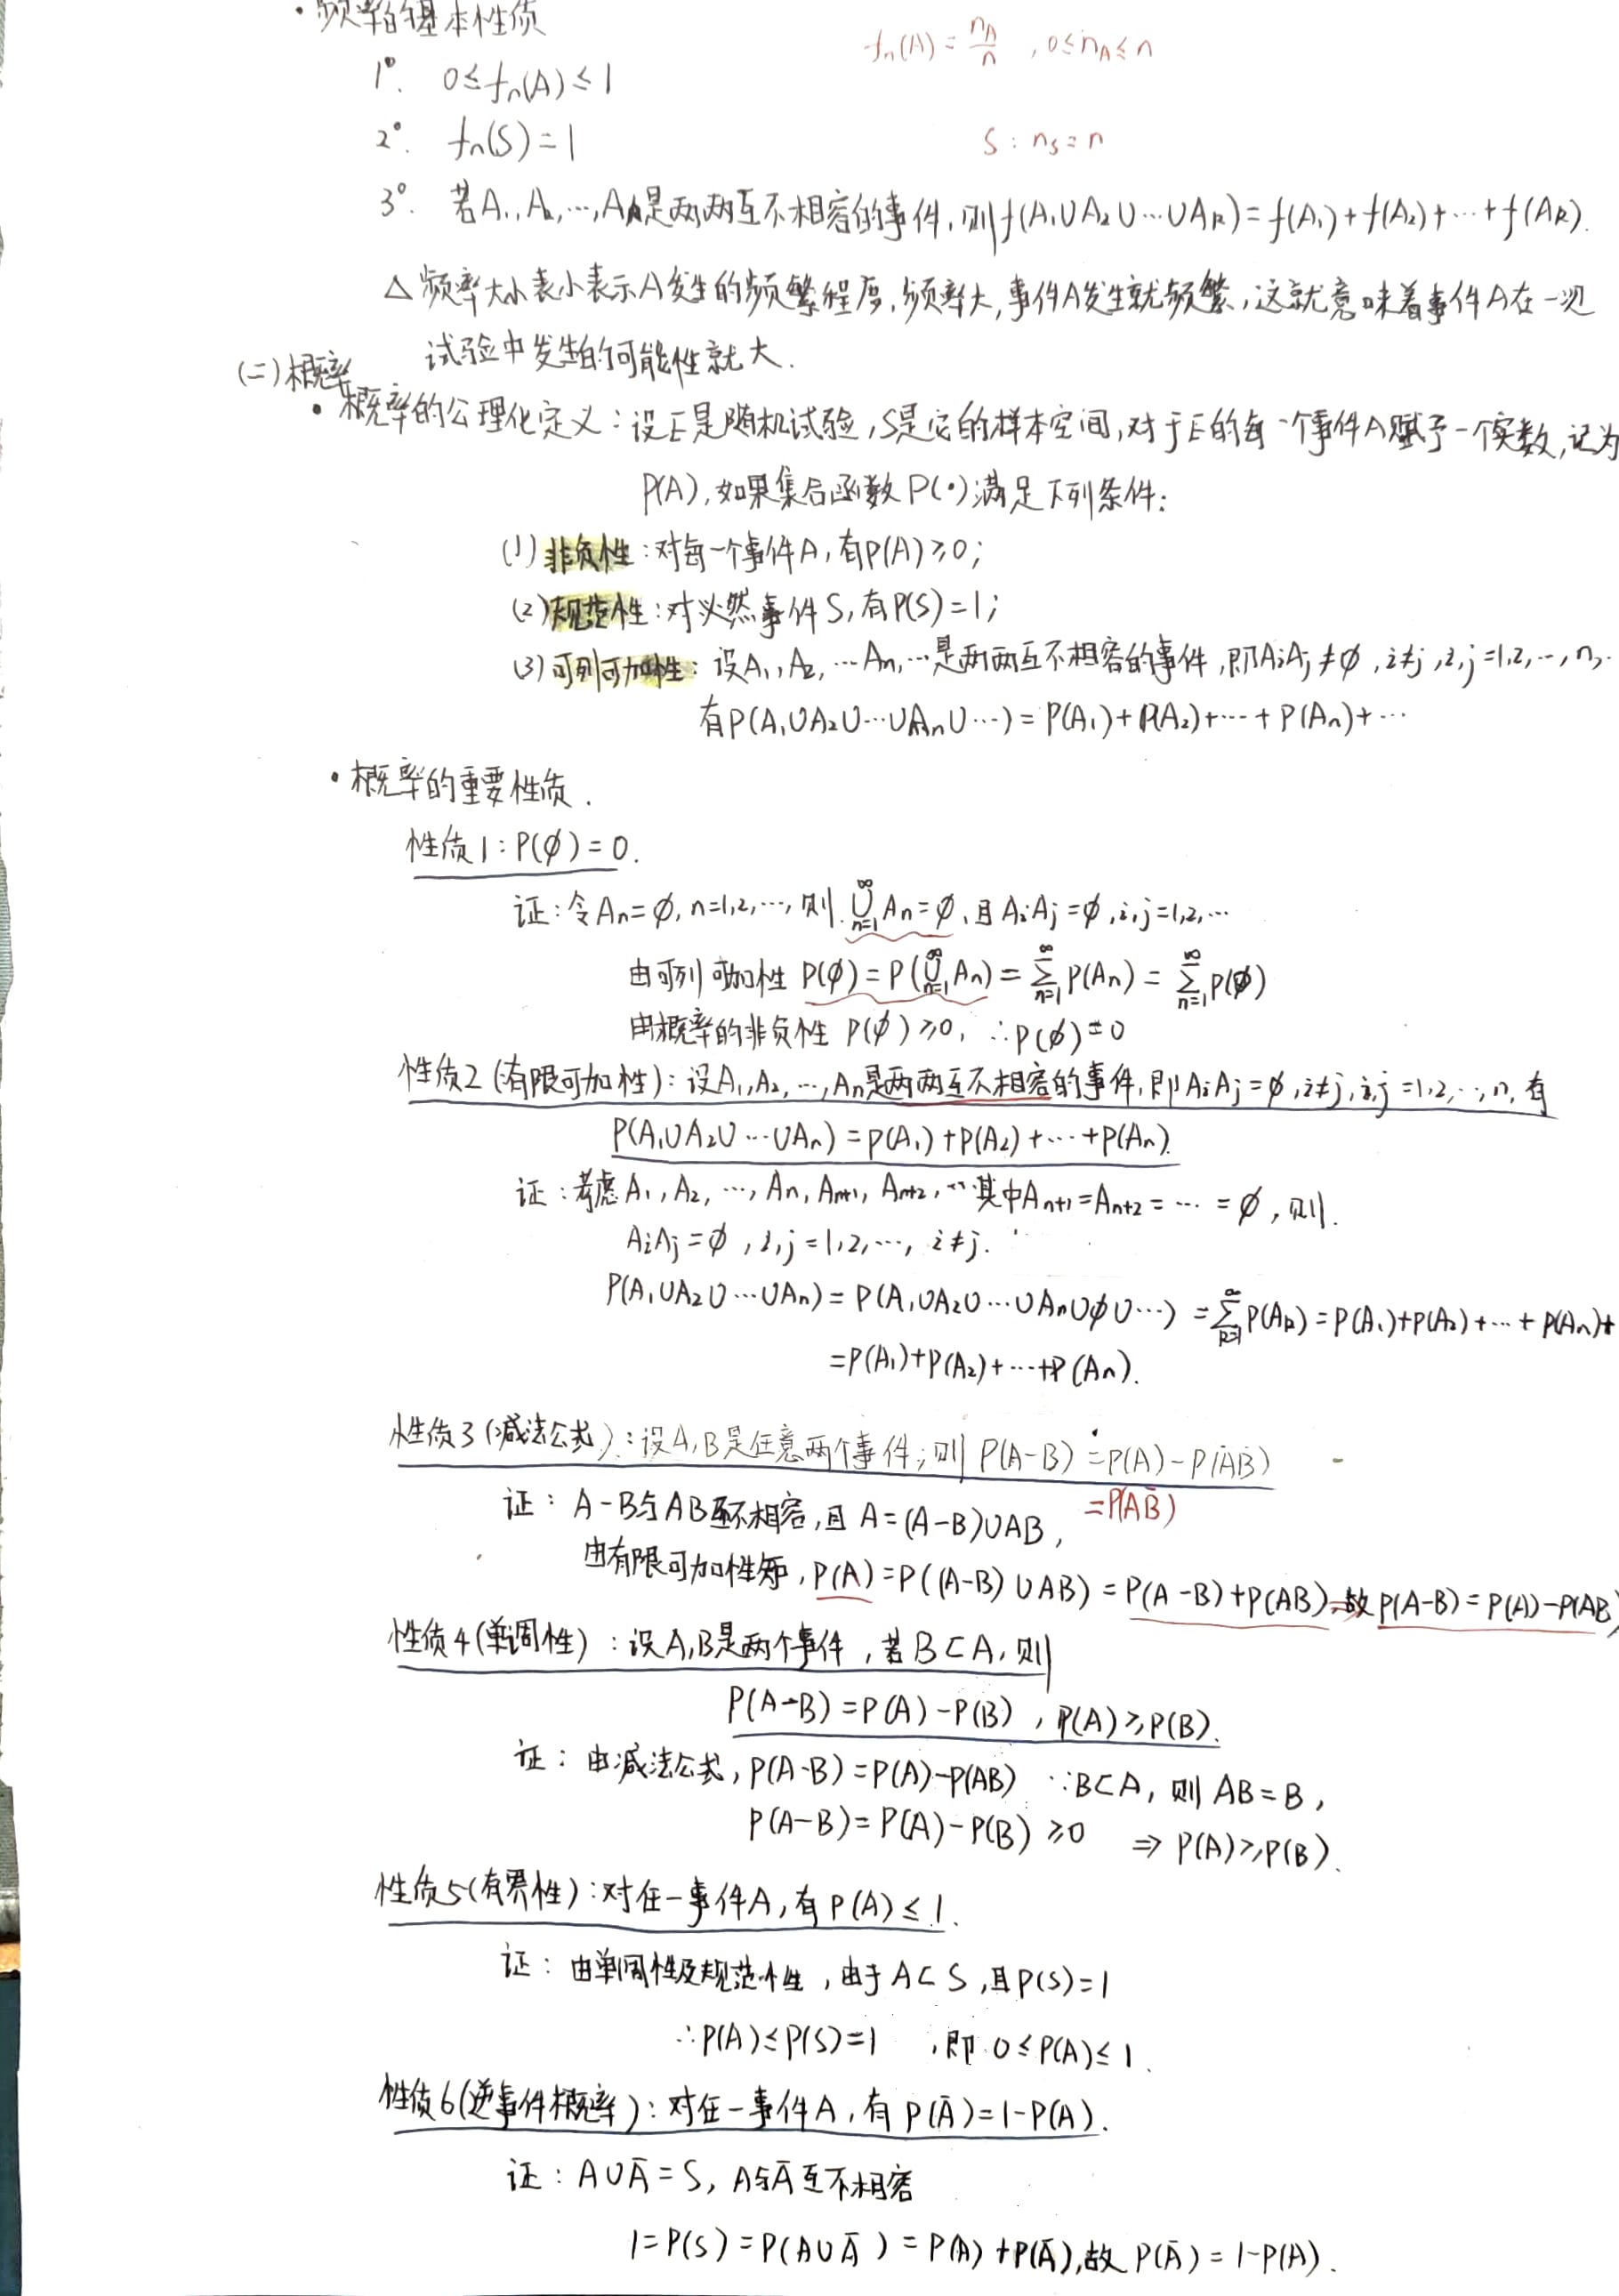 · 频率的基本性质
fn(A) = nA/n , 0≤nA≤n
1°. 0≤fn(A)≤1
2°. fn(S)=1
S : nS = n
3°. 若A₁,A₂,…,Ak是两两互不相容的事件,则f(A₁∪A₂∪…∪Ak)=f(A₁)+f(A₂)+…+f(Ak).
△ 频率大小表小表示A发生的频繁程度,频率大,事件A发生就频繁,这就意味着事件A在一次
试验中发生的可能性就大.
(二)概率
· 概率的公理化定义:设E是随机试验,S是它的样本空间,对于E的每一个事件A赋予一个实数,记为
P(A),如果集合函数P(·)满足下列条件:
(1)非负性:对每一个事件A,有P(A)≥0;
(2)规范性:对必然事件S,有P(S)=1;
(3)可列可加性:设A₁,A₂,…An,…是两两互不相容的事件,即AiAj≠∅,i≠j,i,j=1,2,…,n,..
有P(A₁∪A₂∪…∪An∪…)=P(A₁)+P(A₂)+…+P(An)+…
· 概率的重要性质.
性质1:P(∅)=0.
证:令An=∅,n=1,2,…,则 ∞∪n=1 An=∅,且AiAj=∅,i,j=1,2,…
由可列可加性 P(∅)=P(∞∪n=1 An)=∞∑n=1 P(An)=∞∑n=1 P(∅)
由概率的非负性 P(∅)≥0, ∴P(∅)=0
性质2(有限可加性):设A₁,A₂,…,An是两两互不相容的事件,即AiAj=∅,i≠j,i,j=1,2,…,n,有
P(A₁∪A₂∪…∪An)=P(A₁)+P(A₂)+…+P(An).
证:考虑A₁,A₂,…,An,An+1,An+2,…其中An+1=An+2=…=∅,则.
AiAj=∅,i,j=1,2,…, i≠j.
P(A₁∪A₂∪…∪An)=P(A₁∪A₂∪…∪An∪∅∪…)=∞∑k=1 P(Ak)=P(A₁)+P(A₂)+…+P(An)+
=P(A₁)+P(A₂)+…+P(An).
性质3(减法公式):设A,B是任意两个事件,则P(A-B)=P(A)-P(AB)
=P(AB̄)
证:A-B与AB互不相容,且A=(A-B)∪AB,
由有限可加性知,P(A)=P((A-B)∪AB)=P(A-B)+P(AB),故P(A-B)=P(A)-P(AB)
性质4(单调性):设A,B是两个事件,若B⊂A,则
P(A-B)=P(A)-P(B),P(A)≥P(B).
证:由减法公式,P(A-B)=P(A)-P(AB) ∵B⊂A,则AB=B,
P(A-B)=P(A)-P(B)≥0 ⇒ P(A)≥P(B).
性质5(有界性):对任一事件A,有P(A)≤1.
证:由单调性及规范性,由于A⊂S,且P(S)=1
∴P(A)≤P(S)=1 ,即0≤P(A)≤1.
性质6(逆事件概率):对任一事件A,有P(Ā)=1-P(A).
证:A∪Ā=S,A与Ā互不相容
1=P(S)=P(A∪Ā)=P(A)+P(Ā),故P(Ā)=1-P(A).